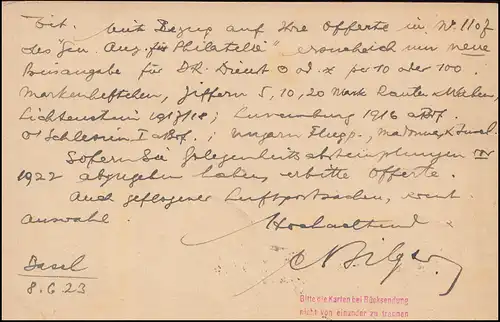 Tit. Mit Bezug auf Ihre Offerte in Nr. 1107
des "Gen. Anz. für Philatelie" ersuche ich um neue
Preisangabe für DR. Dienst o od. x per 10 oder 100.
Markenheftchen, Ziffern 5, 10, 20 Mark Raute &
Lichtenstein 1917/18; Luxemburg 1916
O/Schlesien I ; Ungarn Flugp., Madonna & Insel
Sofern Sie Gelegenheitsabstempelungen vor
1922 abzugeben haben, erbitte Offerte.
Auch geflogener Luftpostsachen, event.
Auswahl.
Hochachtend
Bilger
Basel
8.6.23
Bitte die Karten bei Rücksendung
nicht von einander zu trennen